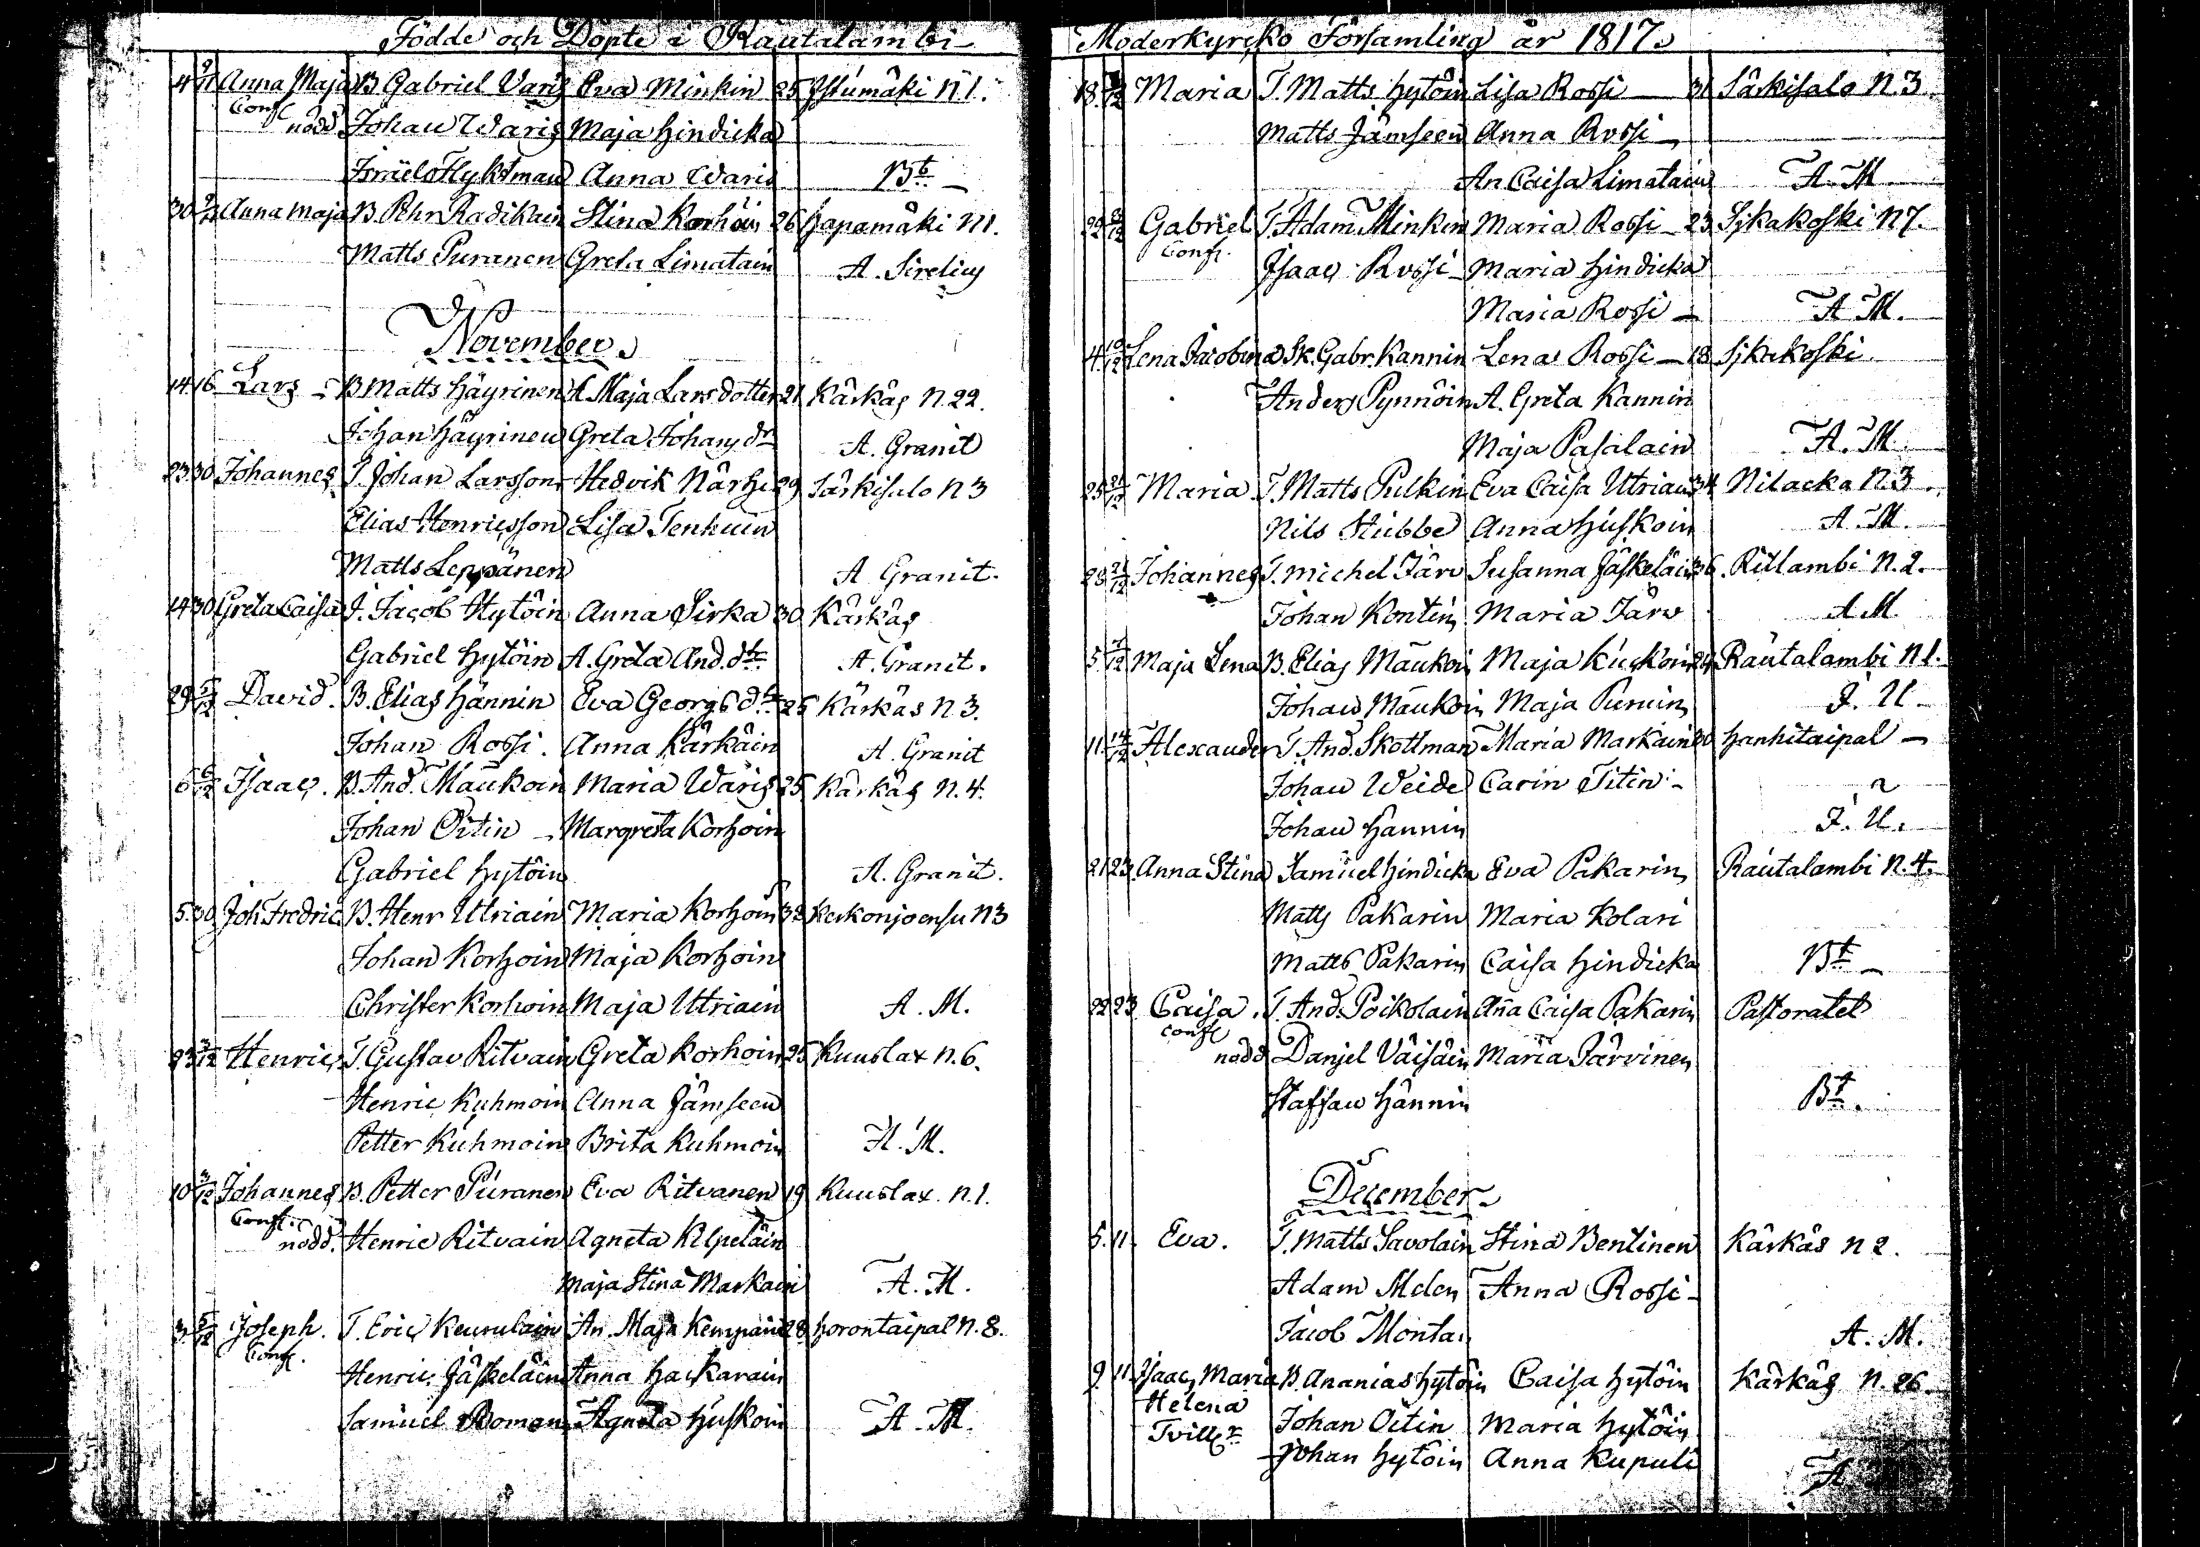 Födde och Döpte i Rautalambi
4 Anna Maja B. Gabriel Varis Eva Minkin 25 Istumäki N 1.
Conf. nödd Johan Waris Maja Hindicka
Israel Flyktman Anna Waris Bt
30 Anna Maja B. Pehr Radikain Stina Korhoin 26 Hapamäki N 1.
Matts Puranen Greta Limatain A. Sirelius
November
14 16 Lars B. Matts Häyrinen A. Maja Larsdotter 21 Kärkäs N. 22.
Johan Häyrinen Greta Johans dr A. Granit
23 30 Johannes T. Johan Larsson Hedvik Närhi 29 Särkisalo N 3
Elias Henricsson Lisa Tenhuin
Matts Leppänen A. Granit.
14 30 Greta Caisa J. Jacob Hytöin Anna Sirka 30 Kärkäs
Gabriel Hytöin A. Greta And. dtr A. Granit.
29 David. B. Elias Hännin Eva Georgs dtr 25 Kärkäs N 3.
Johan Rossi. Anna Kärkäin A. Granit
6 6/12 Isaac. B. And. Maukoin Maria Waris 25 Kärkäs N. 4.
Johan Oitin Margreta Korhoin
Gabriel Hytöin A. Granit.
5 30 Joh. Fredric B. Henr Utriain Maria Korhoin 32 Kerkonjoensu N 3
Johan Korhoin Maja Korhoin
Christer Korhoin Maja Utriain A. M.
23 3/12 Henric T. Gustav Ritvain Greta Korhoin 25 Kuuslax n. 6.
Henric Kuhmoin Anna Jämseen
Petter Kuhmoin Brita Kuhmoin A. M.
10 Johannes B. Petter Puranen Eva Ritvanen 19 Kuuslax. n. 1.
Conf. nödd. Henric Ritvain Agneta Kilpeläin
Maja Stina Markain A. M.
3 5/12 Joseph. T. Eric Keurulain An. Maja Kempain 28 Horontaipal N. 8.
Conf. Henric Jäskeläin Anna Hackarain
Samuel Roman Agneta Huskoin A. M.
Moderkyrcko Församling år 1817.
18 Maria T. Matts Hytöin Lisa Rossi 31 Särkisalo N. 3
Matts Jämseen Anna Rossi
An Caisa Limatain A. M
Gabriel T. Adam Minkin Maria Rossi 23 Sjkakoski N 7.
Conf. Isaac Rossi Maria Hindicka
Maria Rossi A M.
4 Lena Jacobina Sk. Gabr. Kannin Lena Rossi 18 Sjkakoski
Anders Pynnöin A. Greta Kannin
Maja Pasalain A. M.
25 Maria T. Matts Pulkin Eva Caisa Utriain 34 Nilacka N. 3
Nils Stubbe Anna Huskoin A. M.
Johannes T. Michel Järv Susanna Jäskeläin 36. Ritlambi N. 2.
Johan Kontin Maria Järv A M.
5 Maja Lena B. Elias Maukoin Maja Kuckoin 24 Rautalambi N 1.
Johan Maukoin Maja Purnin J. U.
11 14/12 Alexander T. And. Skottman Maria Markain 20 Hanhitaipal
Johan Weide Carin Titin
Johan Hannin J. U.
21 23 Anna Stina Samuel Hindicka Eva Pakarin Rautalambi N. 4.
Matts Pakarin Maria Kolari
Matts Pakarin Caisa Hindicka Bt
22 23 Caisa. T. And. Poikolain Aña Caisa Pakarin Pastoratet
Conf. nödd Danjel Väisäin Maria Järvinen
Staffan Hännin Bt.
December
5. 11 Eva. T. Matts Savolain Stina Bentinen Kärkäs n 2.
Adam Melen Anna Rossi
Jacob A. M.
9. 11 Isaac, Maria B. Ananias Hytöin Caisa Hytöin Kärkäs N. 26
Helena Johan Oitin Maria Hytöin
Tvillr Johan Hytöin Anna Kupuli A